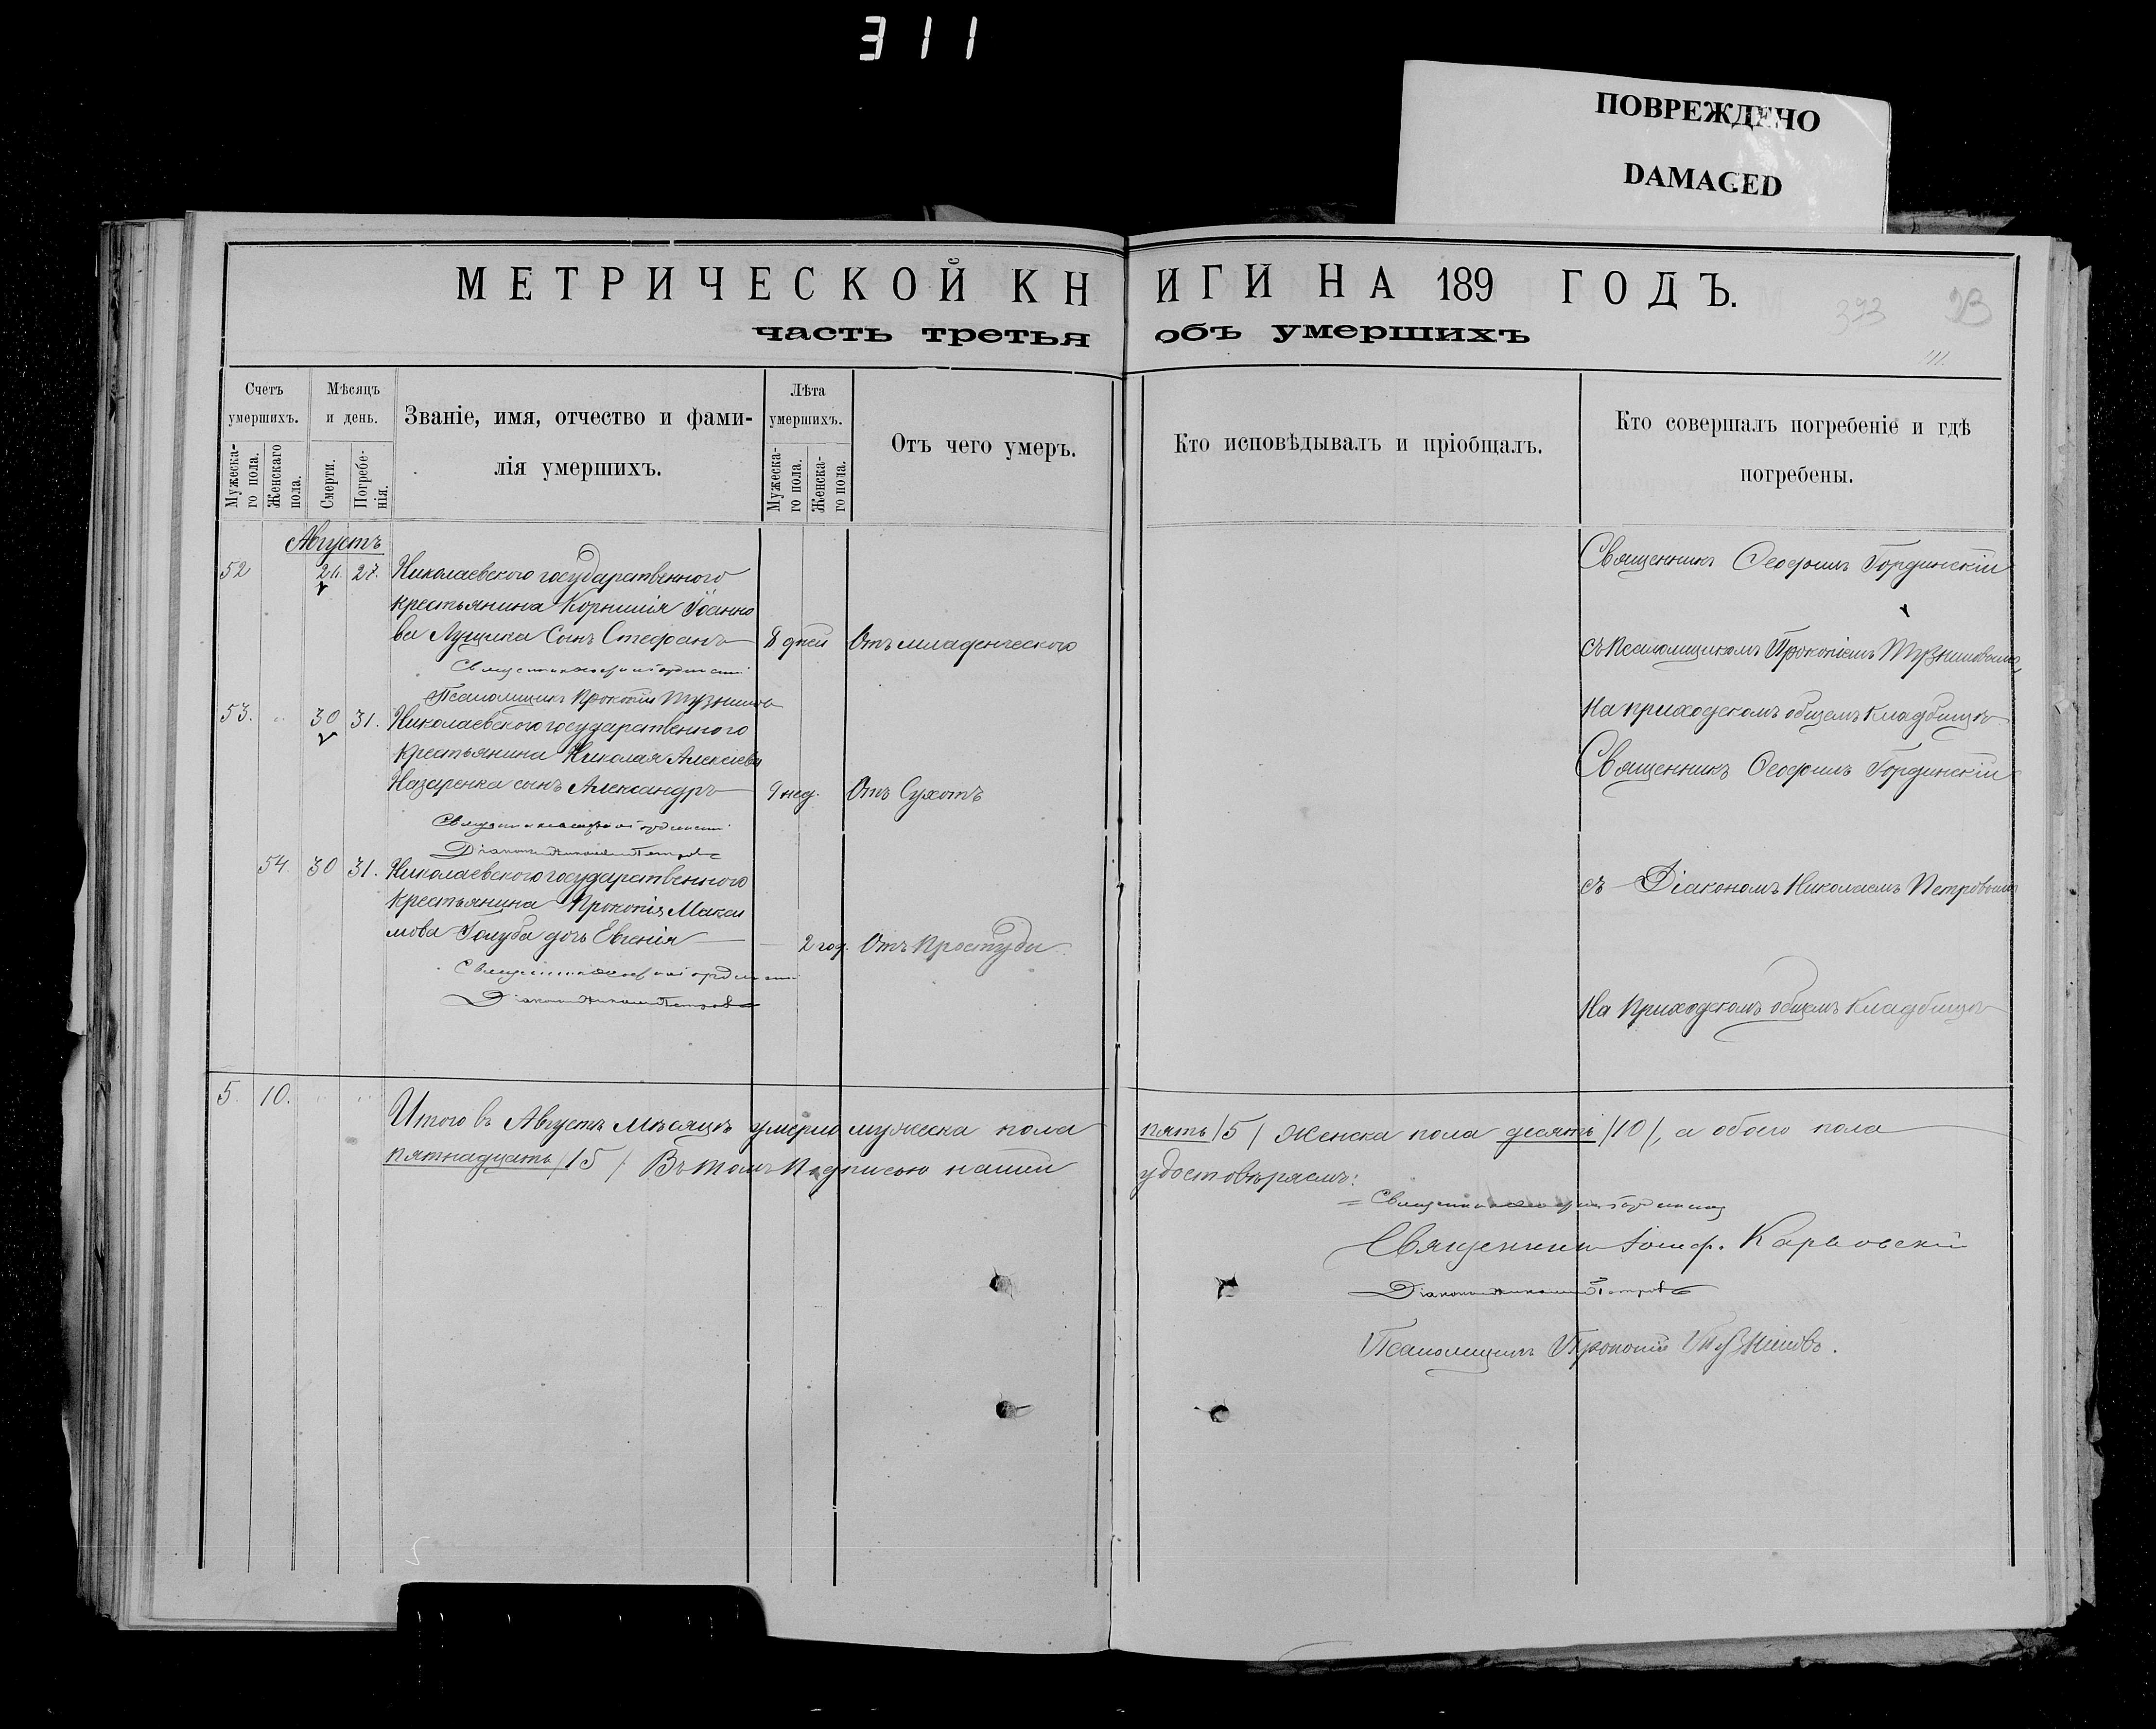 311
ПОВРЕЖДЕНО
DAMAGED
МЕТРИЧЕСКОЙ КНИГИ НА 189 ГОДЪ.
часть третья объ умершихъ
393
111.
Счетъ умершихъ.
Мужеска-
го пола.
Женскаго
пола.
Мѣсяцъ
и день.
Смерти.
Погребе-
нія.
Званіе, имя, отчество и фами-
лія умершихъ.
Лѣта
умершихъ.
Мужеска-
го пола.
Женска-
го пола.
Отъ чего умеръ.
Кто исповѣдывалъ и пріобщалъ.
Кто совершалъ погребеніе и гдѣ
погребены.
Августъ
52 27. Николаевского государственного
крестьянина Корнилія Іоанно
ва Лущика Сынъ Стефанъ 8 дней Отъ младенческого
Псаломщикъ Прокопій
Священникъ Феофилъ Гординскій
съ Псаломщикомъ Прокопіемъ
На приходскомъ общемъ кладбищѣ
53. 30 31. Николаевского государственного
крестьянина Николая Алексіева
Назаренка сынъ Александръ 9 нед. Отъ Сухотъ
Діаконъ Николай Петровъ
Священникъ Феофилъ Гординскій
54. 30 31. Николаевского государственного
крестьянина Прокопія Макси
мова Голуба дочь Евгенія 2 год. Отъ Простуды
Діаконъ Николай Петровъ
съ Діакономъ Николаемъ Петровымъ
На Приходскомъ общемъ Кладбищѣ
5. 10. Итого въ Августѣ Мѣсяцѣ умерло мужеска пола пять /5/ Женска пола десять /10/, а обоего пола
пятнадцать /15/. Въ томъ подписью нашею удостовѣряемъ:
Священникъ Гординскій
Священникъ Іосиф. Карповскій
Діаконъ Николай Петровъ
Псаломщикъ Прокопій